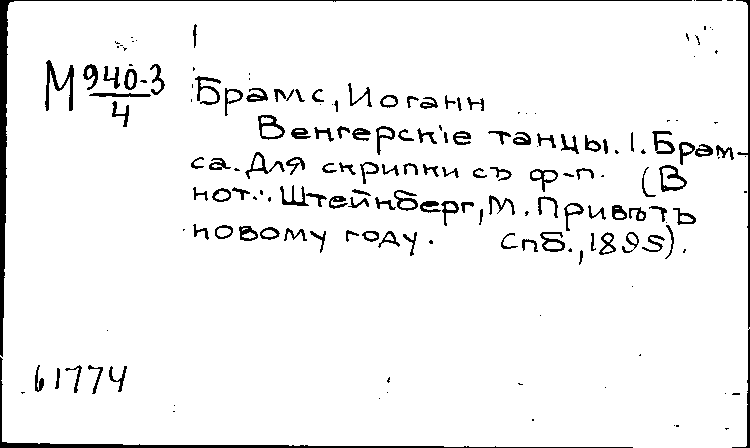 М 940-3
4
Брамс, Иоганн
Венгерскіе танцы. I. Брам-
са. Для скрипки съ ф-п. (В
нот.: Штейнберг, М. Привѣтъ
новому году. Спб., 1895).
61774